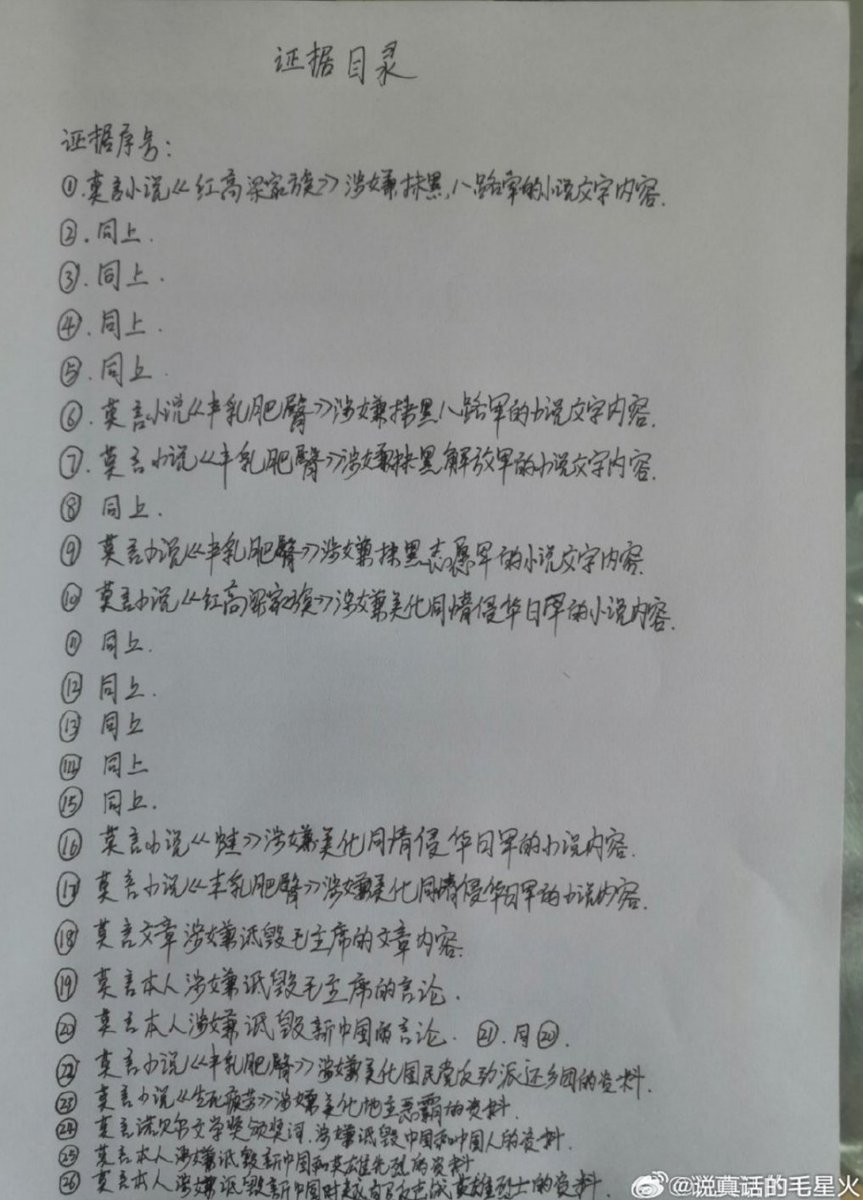 证据目录
证据序号：
①.莫言小说《红高梁家族》涉嫌抹黑八路军的小说文字内容.
②.同上.
③.同上.
④.同上.
⑤.同上.
⑥.莫言小说《丰乳肥臀》涉嫌抹黑八路军的小说文字内容.
⑦.莫言小说《丰乳肥臀》涉嫌抹黑解放军的小说文字内容.
⑧同上.
⑨莫言小说《丰乳肥臀》涉嫌抹黑志愿军的小说文字内容.
⑩莫言小说《红高梁家族》涉嫌美化同情侵华日军的小说内容.
⑪同上.
⑫同上.
⑬同上
⑭同上
⑮同上.
⑯莫言小说《蛙》涉嫌美化同情侵华日军的小说内容.
⑰莫言小说《丰乳肥臀》涉嫌美化同情侵华日军的小说内容.
⑱莫言文章涉嫌诋毁毛主席的文章内容.
⑲莫言本人涉嫌诋毁毛主席的言论.
⑳莫言本人涉嫌诋毁新中国的言论. ㉑.同⑳.
㉒莫言小说《丰乳肥臀》涉嫌美化国民党反动派还乡团的资料.
㉓莫言小说《生死疲劳》涉嫌美化地主恶霸的资料.
㉔莫言诺贝尔文学奖颁奖词,涉嫌诋毁中国和中国人的资料.
㉕莫言本人涉嫌诋毁新中国和英雄先烈的资料
㉖莫言本人涉嫌诋毁新中国对越自卫反击战英雄烈士的资料.
@说真话的毛星火